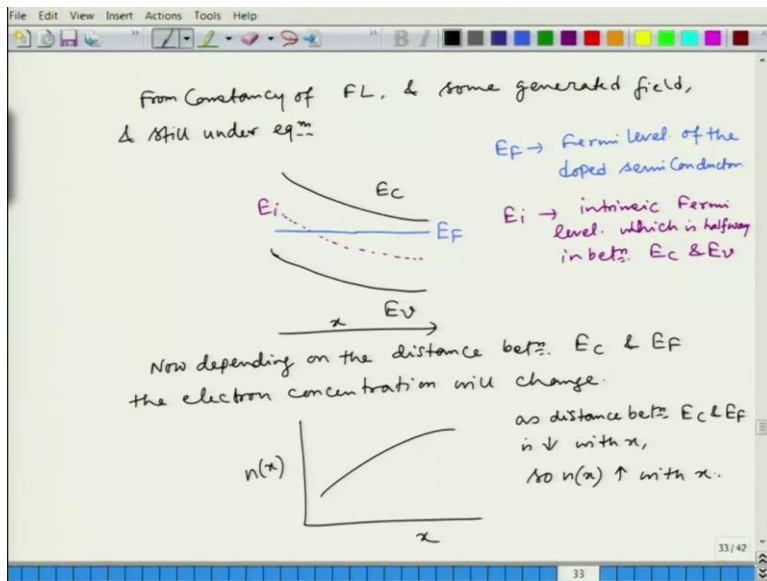 File Edit View Insert Actions Tools Help
From Constancy of FL, & some generated field,
& still under eqm
EF → Fermi level of the
doped semiconductor
Ec
Ei
EF
Ei → intrinsic Fermi
level. which is halfway
in betn. Ec & Ev
Ev
x
Now depending on the distance betn. Ec & EF
the electron concentration will change.
as distance betn Ec & EF
is ↓ with x,
so n(x) ↑ with x.
n(x)
x
33/42
33